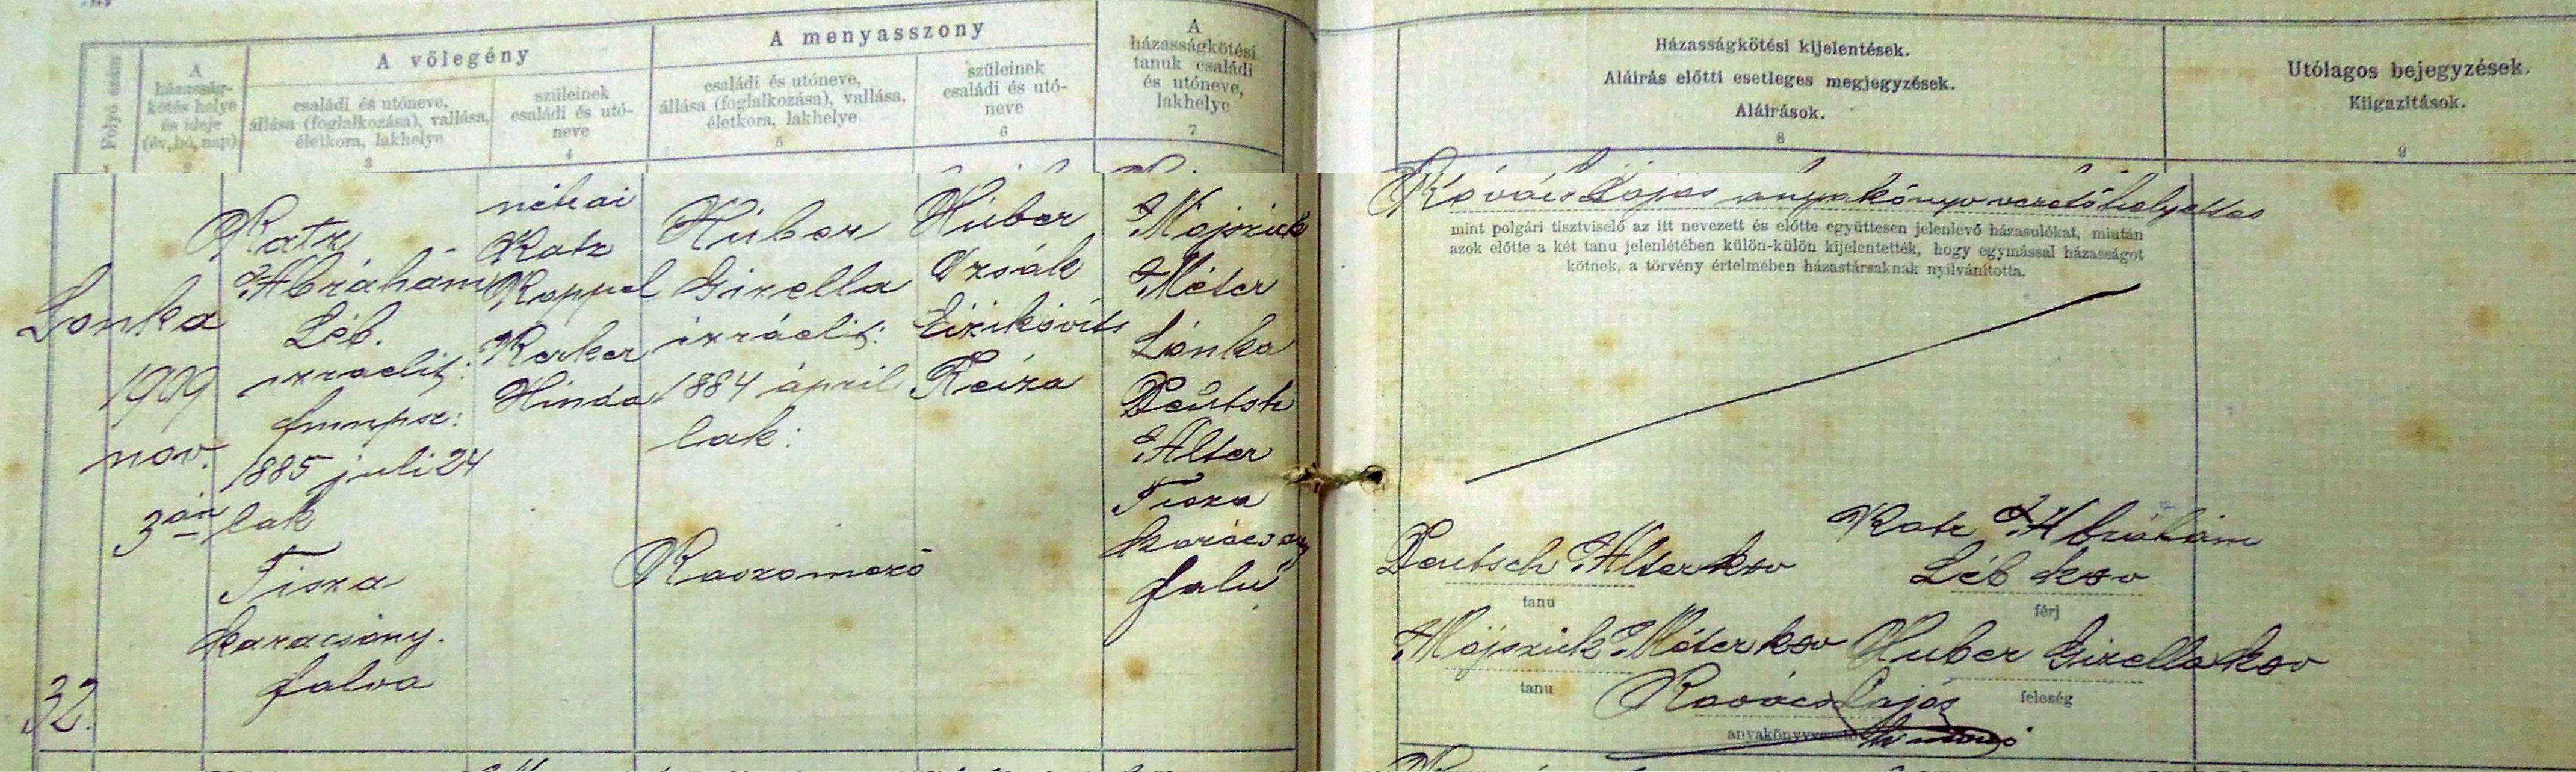 A vőlegény
A menyasszony
Folyó szám
A
házasság-
kötés helye
és ideje
(év, hó, nap)
2
családi és utóneve,
állása (foglalkozása), vallása,
életkora, lakhelye
3
szüleinek
családi és utó-
neve
4
családi és utóneve,
állása (foglalkozása), vallása,
életkora, lakhelye
5
szüleinek
családi és utó-
neve
6
A
házasságkötési
tanuk családi
és utóneve,
lakhelye
7
Házasságkötési kijelentések.
Aláírás előtti esetleges megjegyzések.
Aláírások.
8
Utólagos bejegyzések.
Kiigazitások.
9
32.
Lonka
1909
nov.
3án
Katz
Ábrahám
Léb.
izraelit:
1885 juli 24
lak
Tisza
karacsony.
falva
néhai
Katz
Koppel
Kerker
Hinda
Húber
Gizella
izráelit:
1884 ápril
lak:
Kaszomező
Húber
Izsák
Eizikóvits
Reiza
Mojsziuk
Méter
Lónka
Deutsh
Alter
Tisza
karácsony
falu
Kovács Lajos anyakönyvvezetőhelyettes
mint polgári tisztviselő az itt nevezett és előtte együttesen jelenlevő házasulókat, miután
azok előtte a két tanu jelenlétében külön-külön kijelentették, hogy egymással házasságot
kötnek, a törvény értelmében házastársaknak nyilvánította.
Deutsch Alter ksv
tanu
Katz Ábrahám
Léb ksv
férj
Mojsziuk Méter ksv
tanu
Huber Gizella ksv
feleség
Kovács Lajos
anyakönyvvezető